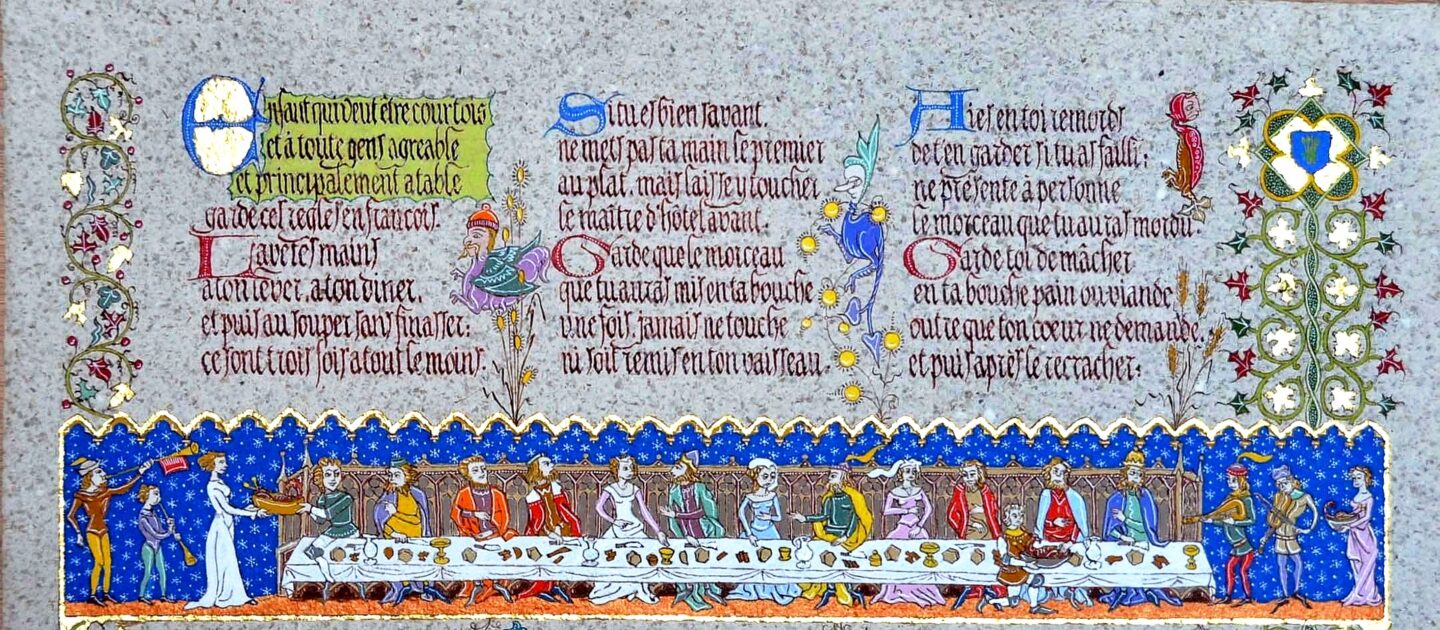 Enfant qui veut être courtois
et à toute gens agreable
et principalement a table
garde ces regles en francois.
Lave tes mains
a ton lever, a ton diner,
et puis au souper sans finasser:
ce sont trois fois a tout le moins.
Si tu es bien savant,
ne mets pas ta main le premier
au plat, mais laisse y toucher
le maître d'hôtel avant.
Garde que le morceau
que tu auras mis en ta bouche
une fois, jamais ne touche
ni soit remis en ton vaisseau.
Aies en toi remords
de t'en garder si tu as failli:
ne présente à personne
le morceau que tu auras mordu.
Garde toi de mâcher
en ta bouche pain ou viande
outre que ton cœur ne demande,
et puis après le recracher: